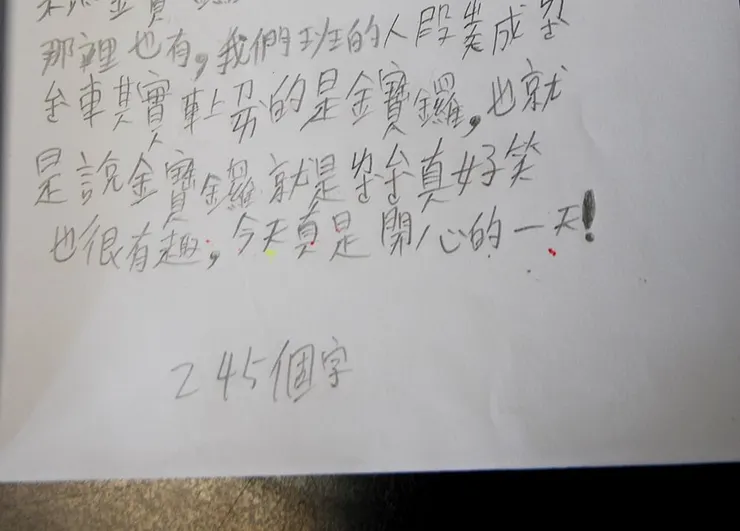 金寶
那裡也有,我們班的人裝成
車其實的是金寶鑼,也就
是說金寶鑼就是真好笑
也很有趣,今天真是開心的一天!
245個字